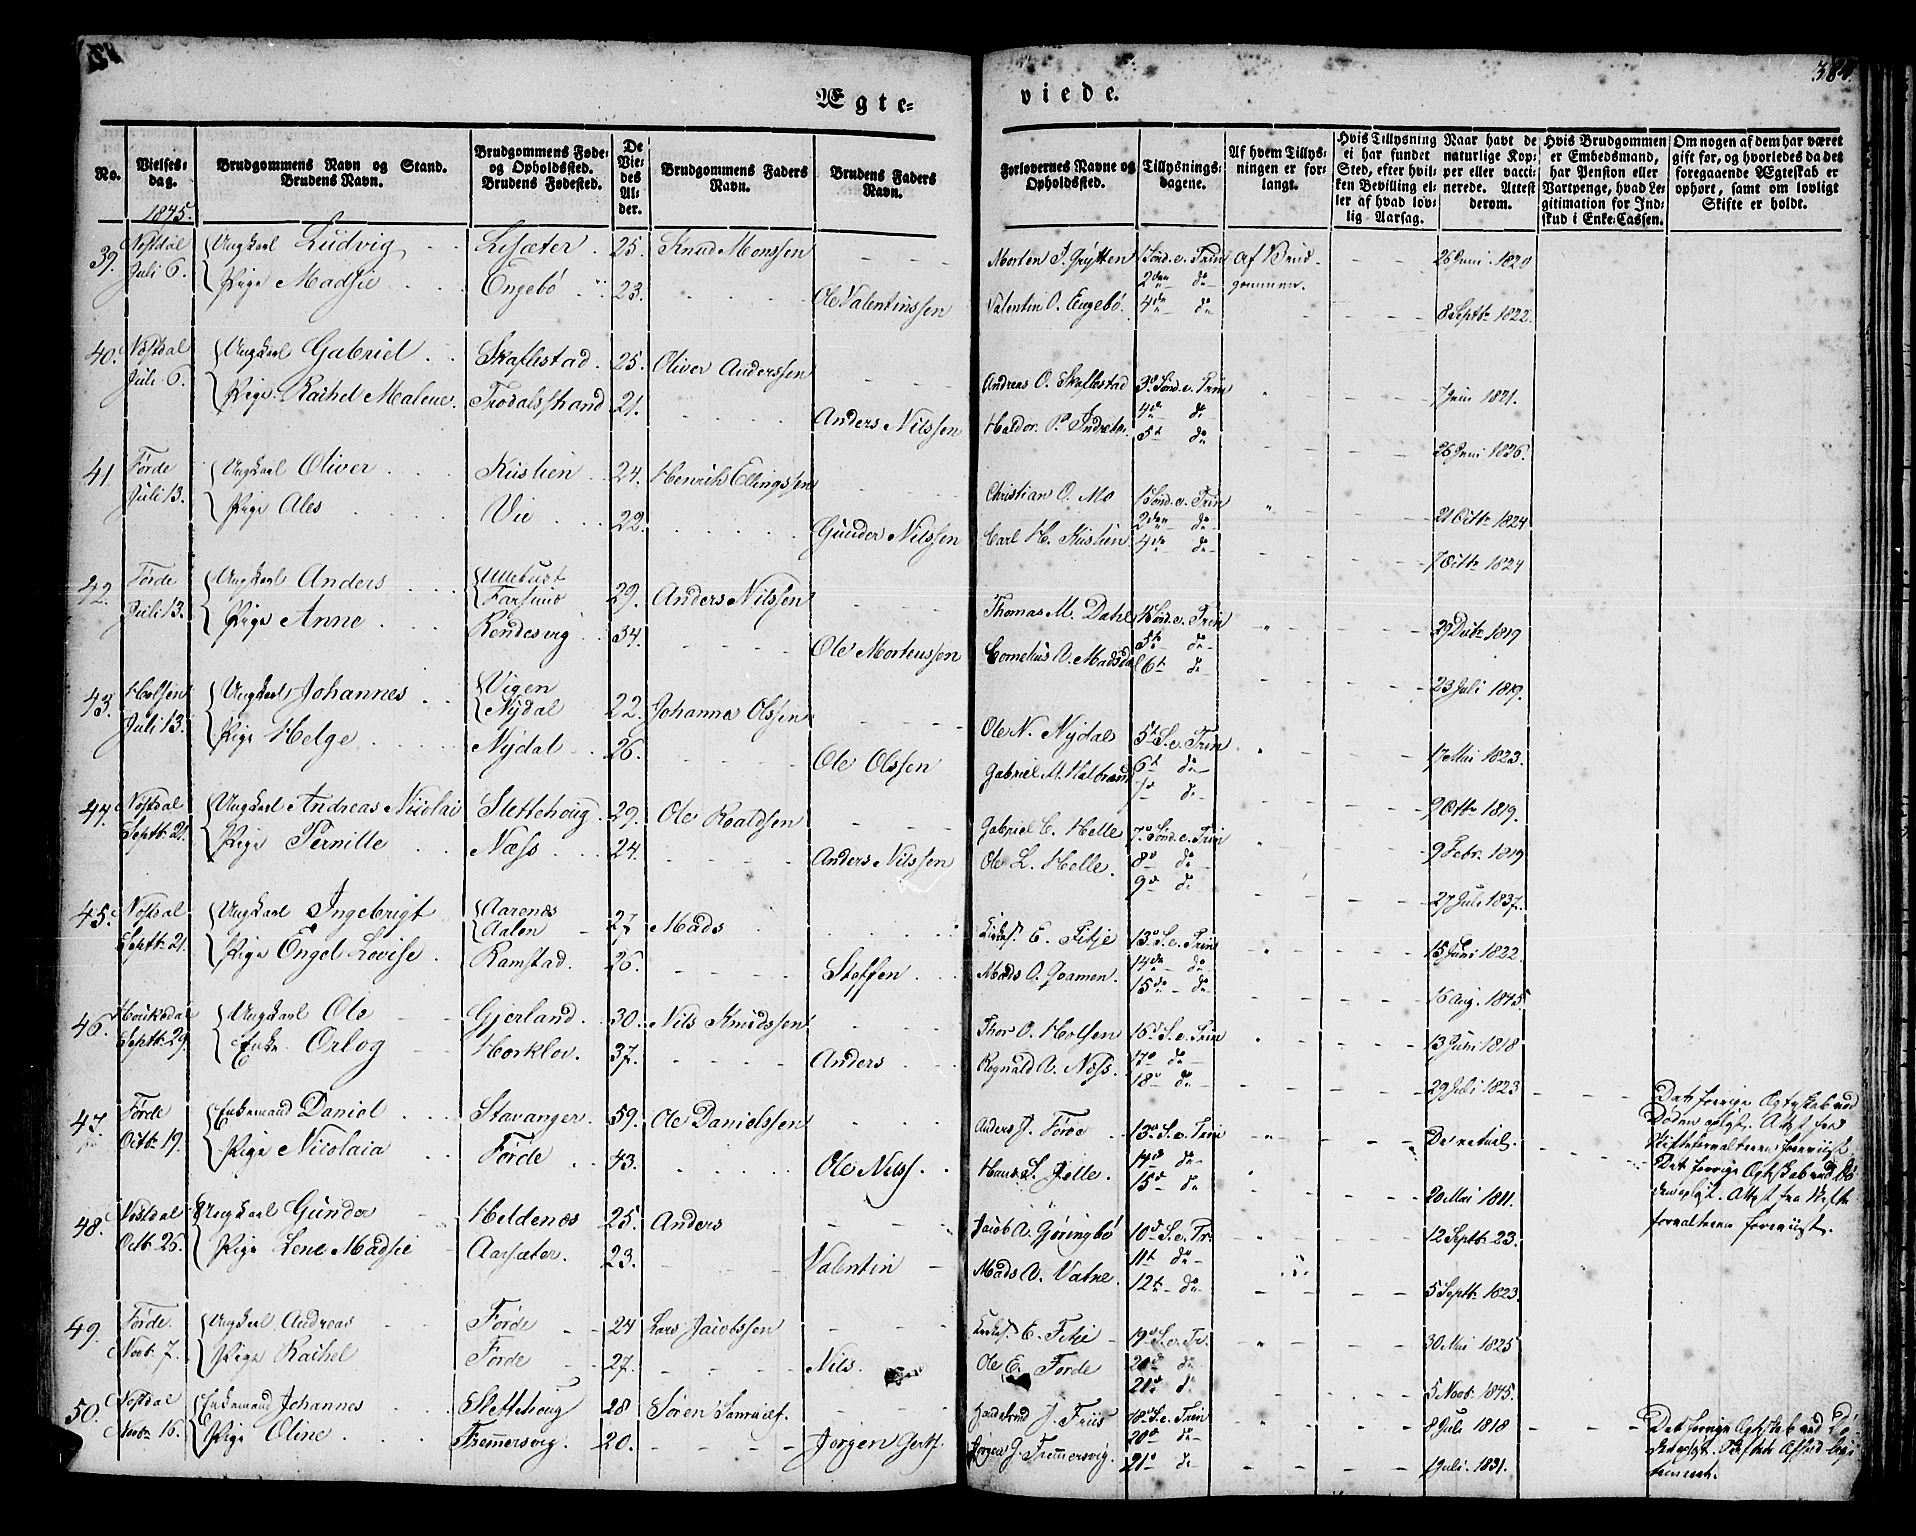 Ægte=
viede.
384
No.
Vielses-
dag.
1845.
Brudgommens Navn og Stand.
Brudens Navn.
Brudgommens Føde-
og Opholdssted.
Brudens Fødested.
De
Vie-
des
Al-
der.
Brudgommens Faders
Navn.
Brudens Faders
Navn.
Forlovernes Navne og
Opholdssted.
Tillysnings-
dagene.
Af hvem Tillys-
ningen er for-
langt.
Hvis Tillysning
ei har fundet
Sted, efter hvil-
ken Bevilling el-
ler af hvad lov-
lig Aarsag.
Naar havt de
naturlige Kop-
per eller vacci-
nerede. Attest
derom.
Hvis Brudgommen
er Embedsmand,
har Pension eller
Vartpenge, hvad Le-
gitimation for Ind-
skud i Enke-Cassen.
Om nogen af dem har været
gift før, og hvorledes da det
foregaaende Ægteskab er
ophørt, samt om lovligt
Skifte er holdt.
39. Nøstdal Ungkarl Ludvig Lisæter 25. Knud Monssen Morten J. Grytten 1 Sønd. e. Trin Af Brud- 26 Juni 1820
Juli 6. Pige Madsie Engebø 23. Ole Valentinssen Valentin O. Engebø. 2den do gommen. 8 Septbr 1822.
4de do
40. Nøstdal Ungkarl Gabriel Skaflestad 25. Oliver Anderssen Andreas O. Skaflestad 3d Sønd. e. Trin 7 Juni 1821.
Juli 6. Pige Rachel Malene Trodalsstrand 21. Anders Nilssen Haldor P. Indrebø. 4de do 26 Juni 1826.
5te do
41. Førde Ungkarl Oliver Kustien 24. Henrik Ellingssen Christian O. Mo 1 Sønd. e. Trin 21 Octbr 1824
Juli 13. Pige Ales Vie 22. Gunder Nilssen Carl H. Kustien 2den do 7 Octbr 1824
4de do
42. Førde Ungkarl Anders Ullebust Farsund 29. Anders Nilssen Thomas M. Dahl Sønd. e. Trin 29 Decbr 1819
Juli 13. Pige Anne Rendesvig 34. Ole Mortenssen Cornelius O. Madsdal 5te do 23 Juli 1819.
6te do
43. Holsen Ungkarl Johannes Vigen Nydal 22. Johannes Olssen Ole N. Nydal 5te S. e. Trin 17 Mai 1823.
Juli 13. Pige Helge Nydal 26. Ole Olssen Gabriel M. 6te do 9 Octbr 1819.
7de do
44. Nøstdal Ungkarl Andreas Nicolai Slettehoug 29. Ole Roaldsen Gabriel C. Helle 7de Sønd. e. Trin 9 Febr. 1819
Septbr 21. Pige Pernille Næss 24. Anders Nilssen Ole L. Helle. 8de do 27 Juli 1837.
9de do
45. Nøstdal Ungkarl Ingebrigt Aarenæs Aalen 27 Mads E. Fitje 13de S. e. Trin 15 Juni 1822.
Septbr 21. Pige Engel Lovise Ramstad. 26. Steffen Mads O. Goamen. 14de do 16 Aug. 1845.
15de do
46. Houkedal Ungkarl Ole Gjerland 30. Nils Knudssen Thor O. Holsen 16de S. e. Trin 13 Juni 1818
Septbr 29. Enke Orlog Horklov. 37. Anders Rognald A. Næss. 17de do 29 Juli 1823
18de do
47. Førde Enkemand Daniel Stavanger 59. Ole Danielssen Anders J. Førde 13de S. e. Trin De naturl. Det forrige Ægteskab ved
Octbr 19. Pige Nicolaia Førde 43. Ole Nilss. Hans S. Helle. 14de do 20 Mai 1811. Døden opløst. Attest fra
15de do Skifteforvalteren foreviist
Det forrige Ægteskab ved Dø-
den opløst. Attest fra Skifte
forvalteren foreviist.
48. Nøstdal Ungkarl Gunder Heldenæs 25. Anders Jacob A. Gjøringbø 10de S. e. Tr. 12 Septbr 23.
Octbr 26. Pige Lene Madsie Aarsæter 23. Valentin Mads O. Vatne 11te do 5 Septbr 1823.
12te do
49. Førde Ungkarl Andreas Førde 24 Lars Jacobssen E. Fitje 19de S. e. Tr. 30 Mai 1825
Novbr 7. Pige Rachel Førde 27. Nils. Ole E. Førde 20de do 5 Novbr 1845.
21de do
50. Nøstdal Enkemand Johannes Slettehoug 28 Søren Samuels. J. Friis 18de S. e. Trin 8 Juli 1818 Det forrige Ægteskab ved Dø-
Novbr 16. Pige Oline Tremersvig. 20. Jørgen Gertss. Jørgen G. Tremersvig. 20de do 1 Juli. 1831.
21de do